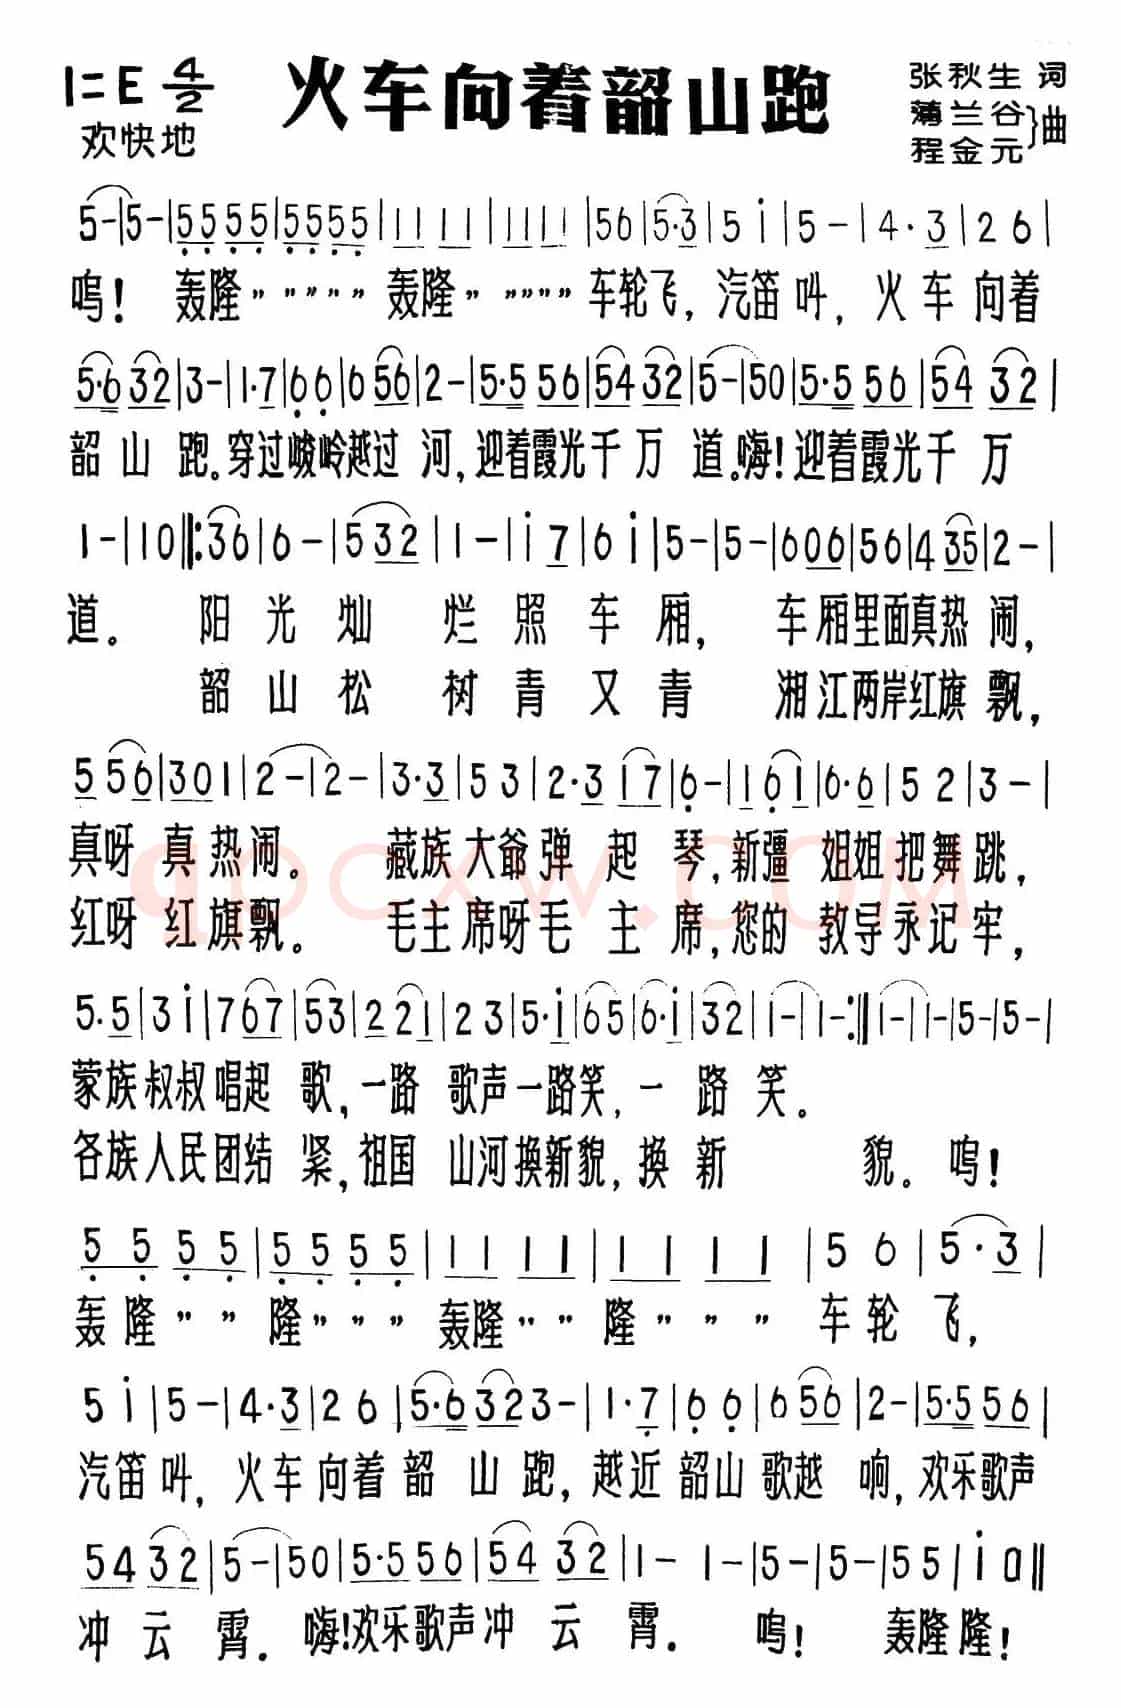 1=E 4/2 火车向着韶山跑 张秋生 词
欢快地 蒲兰谷 程金元}曲
5-|5-|5555|5555|1111|1111|56|5·3|5i|5-|4·3|26|
呜! 轰隆〃〃〃〃〃 轰隆〃〃〃〃〃车轮飞,汽笛叫,火车向着
5·6 32|3-|1·7|66|6 56|2-|5·5 56|54 32|5-|50|5·5 56|54 32|
韶山跑。穿过峻岭越过河,迎着霞光千万道。嗨!迎着霞光千万
1-|10‖:36|6-|532|1-|i7|6i|5-|5-|606|56|435|2-|
道。 阳光灿烂照车厢, 车厢里面真热闹,
韶山松树青又青 湘江两岸红旗飘,
556|301|2-|2-|3·3|53|2·3 17|6-|161|6·6|52|3-|
真呀真热闹。 藏族大爷弹起琴,新疆姐姐把舞跳,
红呀红旗飘。 毛主席呀毛主席,您的教导永记牢,
qocxw.COM
5·5|3i|767|53|221|23|5·i|65|6·i|32|1-|1-:‖1-|1-|5-|5-|
蒙族叔叔唱起歌,一路歌声一路笑,一路笑。
各族人民团结紧,祖国山河换新貌,换新 貌。 呜!
5555|5555|1111|1111|56|5·3|
轰隆〃〃隆〃〃〃轰隆〃〃隆〃〃〃车轮飞,
5i|5-|4·3|26|5·6 323-|1·7|66|656|2-|5·556|
汽笛叫,火车向着韶山跑,越近韶山歌越响,欢乐歌声
54 32|5-|50|5·556|54 32|1-1-|5-|5-|55|i0‖
冲云霄.嗨!欢乐歌声冲云霄. 呜! 轰隆隆!